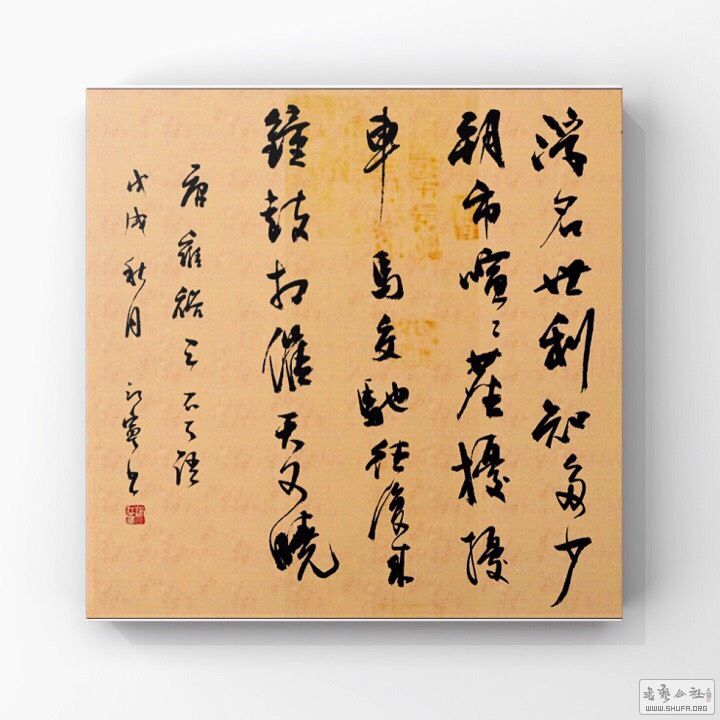 浮名世利知多少
朝市喧〻塵擾擾
車馬交馳往復來
鐘鼓相催天又曉
唐雍裕之不了語
戊戌秋月 寧書
書藝公社
WWW.SHUFA.ORG